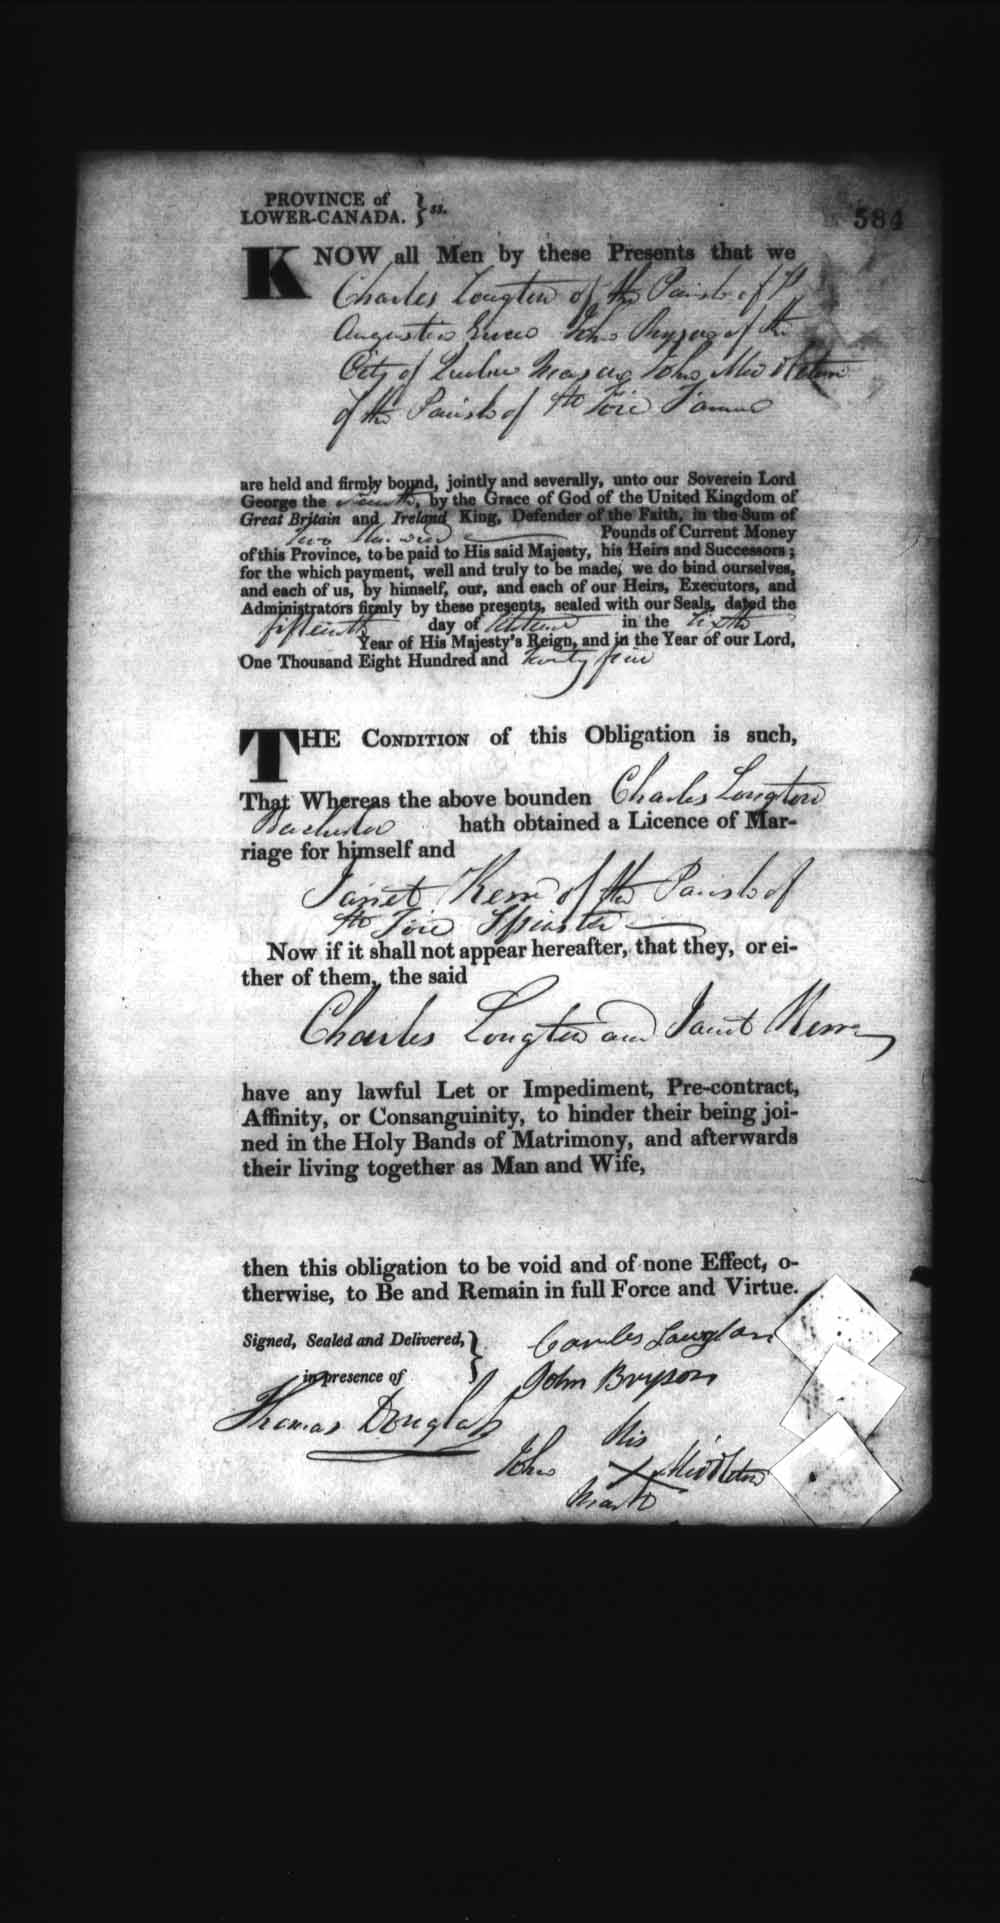 PROVINCE of
LOWER-CANADA. } ss.
584
KNOW all Men by these Presents that we
Charles Longton of the Parish of St
Augustin John Bryson of the
City of Quebec Mason John Middleton
of the Parish of Ste Foie Farmer
are held and firmly bound, jointly and severally, unto our Soverein Lord
George the Fourth, by the Grace of God of the United Kingdom of
Great Britain and Ireland King, Defender of the Faith, in the Sum of
Two Hundred Pounds of Current Money
of this Province, to be paid to His said Majesty, his Heirs and Successors;
for the which payment, well and truly to be made, we do bind ourselves,
and each of us, by himself, our, and each of our Heirs, Executors, and
Administrators firmly by these presents, sealed with our Seals, dated the
fifteenth day of in the Sixth
Year of His Majesty's Reign, and in the Year of our Lord,
One Thousand Eight Hundred and twenty five
THE CONDITION of this Obligation is such,
That Whereas the above bounden Charles Longton
Bachelor hath obtained a Licence of Mar-
riage for himself and
Janet Kerr of the Parish of
Ste Foie Spinster
Now if it shall not appear hereafter, that they, or ei-
ther of them, the said
Charles Longton and Janet Kerr
have any lawful Let or Impediment, Pre-contract,
Affinity, or Consanguinity, to hinder their being joi-
ned in the Holy Bands of Matrimony, and afterwards
their living together as Man and Wife,
then this obligation to be void and of none Effect, o-
therwise, to Be and Remain in full Force and Virtue.
Signed, Sealed and Delivered,
in presence of
Charles Longton
John Bryson
Thomas Douglass
His
John X Middleton
mark